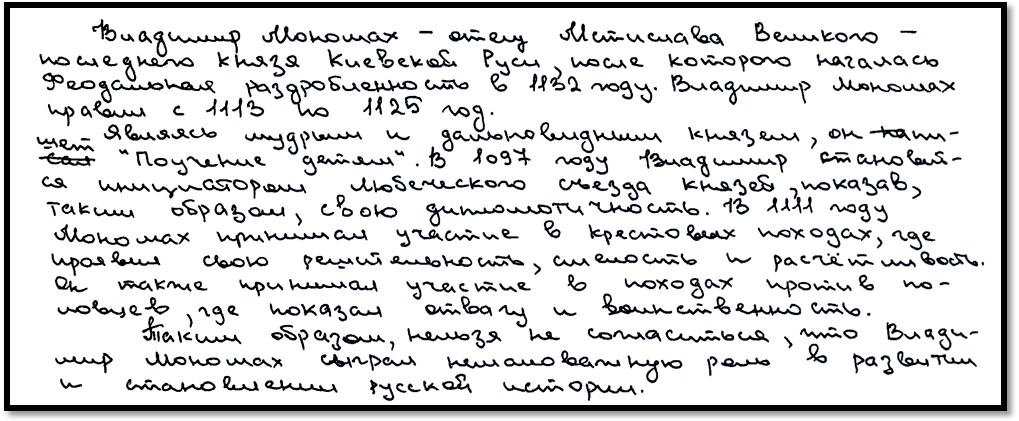 Владимир Мономах – отец Мстислава Великого –
последнего князя Киевской Руси, после которого началась
феодальная раздробленность в 1132 году. Владимир Мономах
правил с 1113 по 1125 год.
Являясь мудрым и дальновидным князем, он напи-
шет "Поучение детям". В 1097 году Владимир становит-
ся инициатором Любеческого съезда князей, показав,
таким образом, свою дипломотичность. В 1111 году
Мономах принимал участие в крестовых походах, где
проявил свою решительность, смелость и расчётливость.
Он также принимал участие в походах против по-
ловцев, где показал отвагу и воинственность.
Таким образом, нельзя не согласиться, что Влади-
мир Мономах сыграл немаловажную роль в развитии
и становлении русской истории.